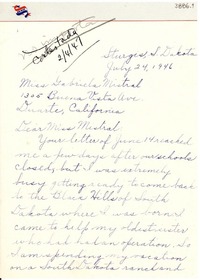 3886.1
Contestada
2/4/47
Sturgis, S. Dakota
July 24, 1946
Miss Gabriela Mistral
1305 Buena Vista Ave
Duarte, California
Dear Miss Mistral
Your letter of June 14 reached
me a few days after our school
closed, but I was extremely
busy getting ready to come back
to the Black Hills of South
Dakota where I was born. I
came to help my oldest sister
who had had an operation. So
I am spending my vacation
on a South Dakota ranch and